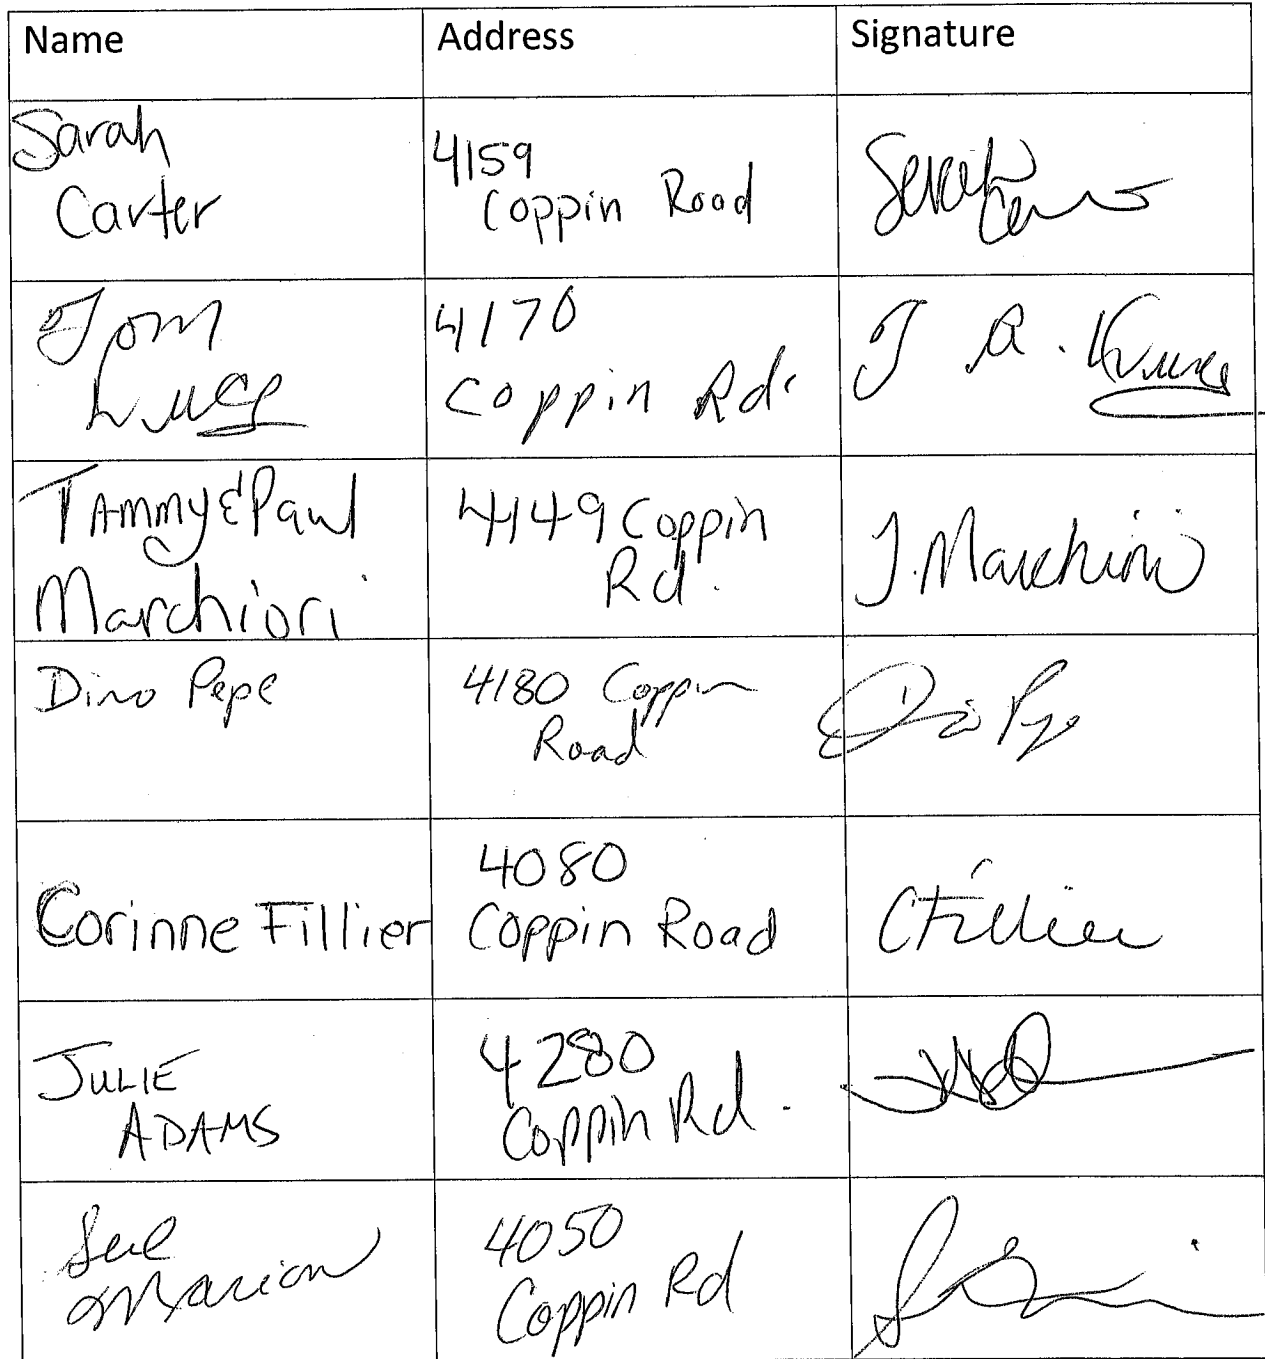 Name Address Signature
Sarah
Carter
4159
Coppin Road
Sarah
Tom
4170
Coppin Rd.
T R.
TAmmy & Paul
Marchiori
4149 Coppin
Rd.
T. Marchiori
Dino Pepe
4180 Coppin
Road
Corinne Fillier
4080
Coppin Road
CFillier
JULIE
ADAMS
4280
Coppin Rd.
Sue
Marion
4050
Coppin Rd